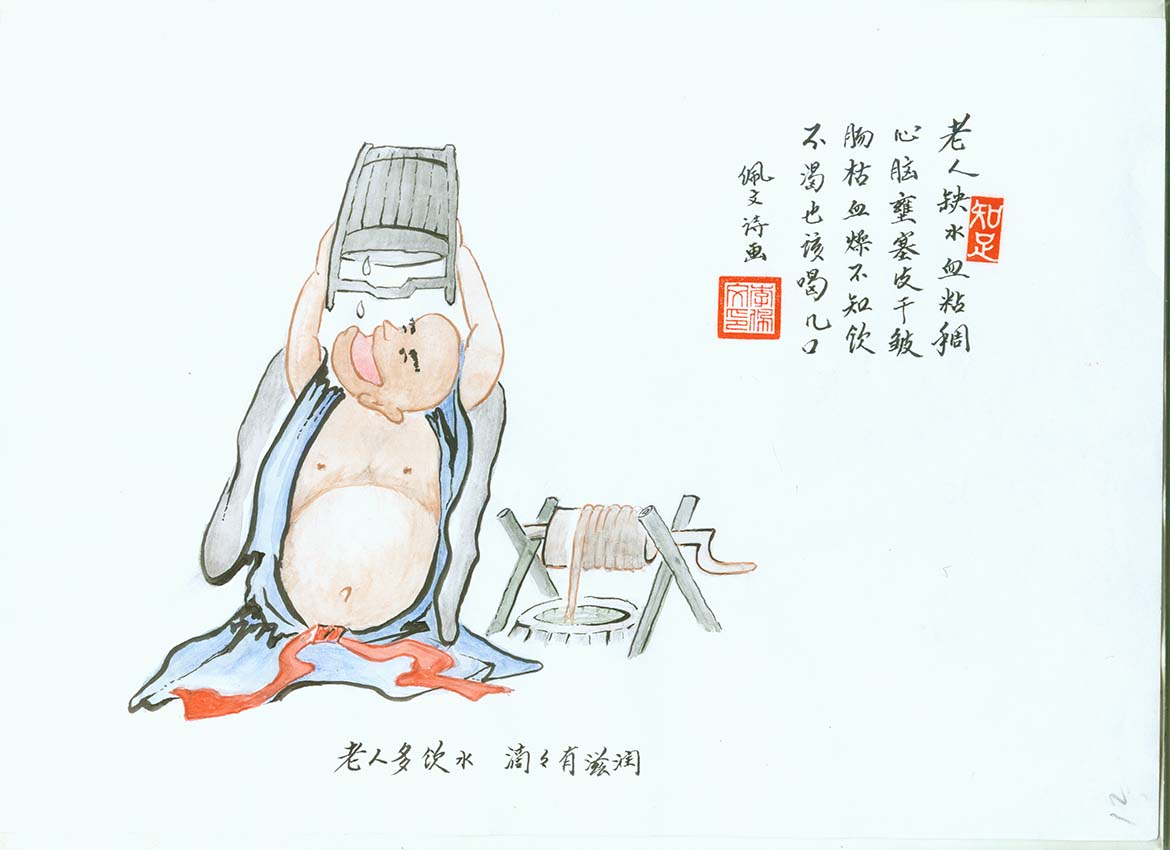 老人缺水血粘稠
心脑壅塞皮干皱
肠枯血燥不知饮
不渴也该喝几口
佩文诗画
知足
李佩文印
老人多饮水 滴々有滋润
12